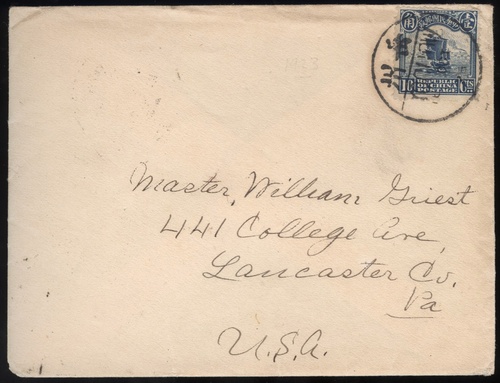 1923
REPUBLIC
OF CHINA
POSTAGE
10 Cts
Master, William Griest
441 College Ave,
Lancaster Co.
Pa
U.S.A.